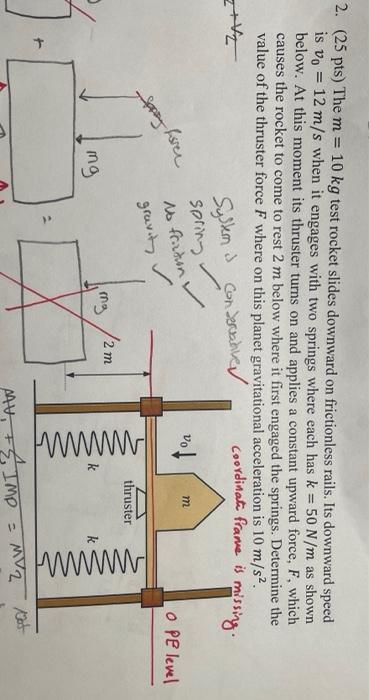 2. (25 pts) The m = 10 kg test rocket slides downward on frictionless rails. Its downward speed
is v₀ = 12 m/s when it engages with two springs where each has k = 50 N/m as shown
below. At this moment its thruster turns on and applies a constant upward force, F, which
causes the rocket to come to rest 2 m below where it first engaged the springs. Determine the
value of the thruster force F where on this planet gravitational acceleration is 10 m/s².
+V₂
System is conservative ✓
spring ✓
No friction ✓
gravity ✓
force
coordinate frame is missing.
v₀
m
0 PE level
thruster
2 m
k
k
mg
mg
+
=
MV₁ + Σ IMP = MV₂